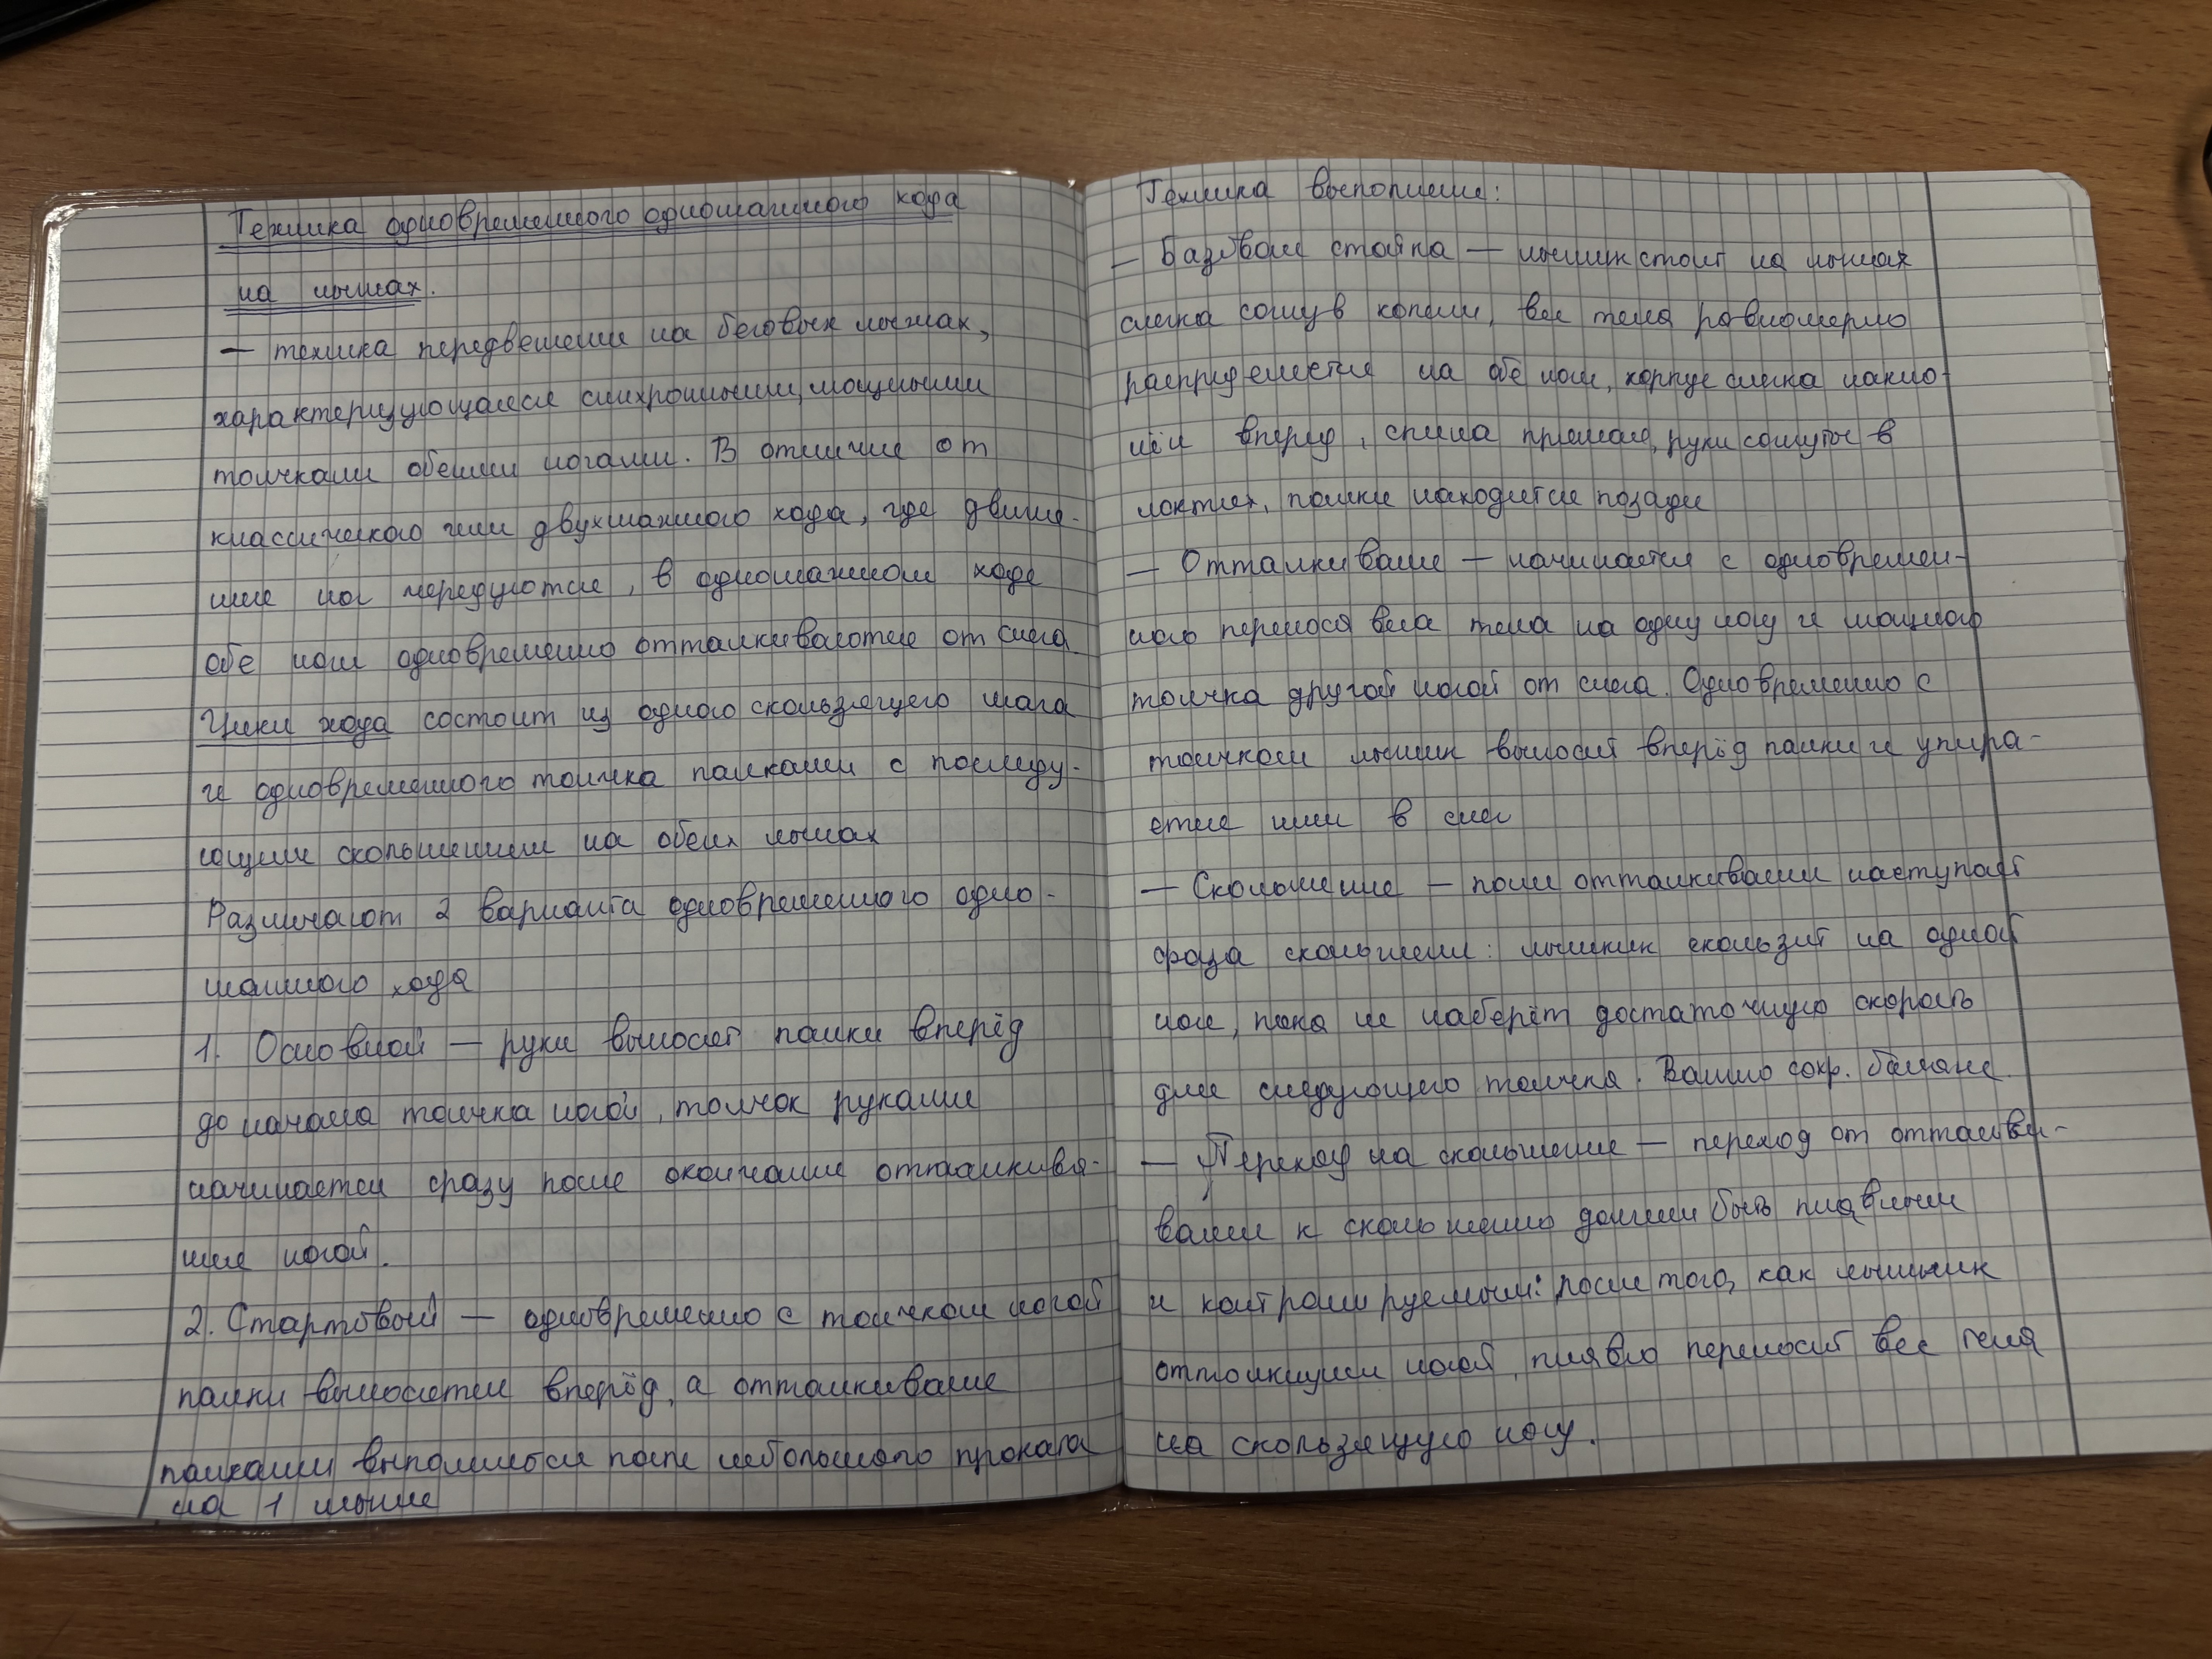 Техника одновременного одношажного хода
на лыжах.
— техника передвежения на беговых лыжах,
характеризующаяся синхронными, мощными
толчками обеими ногами. В отличие от
классического или двухшажного хода, где движе-
ние ног чередуются, в одношажном ходе
обе ноги одновременно отталкиваются от снега
Цикл хода состоит из одного скользящего шага
и одновременного толчка палками с последу-
ющим скольжением на обеих лыжах
Различают 2 варианта одновременного одно-
шажного хода
1. Основной — руки выносят палки вперёд
до начала толчка ногой, толчок руками
начинается сразу после окончания отталкива-
ния ногой.
2. Стартовый — одновременно с толчком ногой
палки выносятся вперёд, а отталкивание
палками выполняется после небольшого проката
на 1 лыже
Техника выполнения:
— Базовая стойка — лыжник стоит на лыжах
слегка согнув колени, вес тела равномерно
распределяется на обе ноги, корпус слегка накло-
нён вперед, спина прямая, руки согнуты в
локтях, палки находятся позади
— Отталкивание — начинается с одновремен-
ного переноса веса тела на одну ногу и мощного
толчка другой ногой от снега. Одновременно с
толчком лыжник выносит вперёд палки и упира-
ется ими в снег
— Скольжение — после отталкивания наступает
фаза скольжения: лыжник скользит на одной
ноге, пока не наберёт достаточную скорость
для следующего толчка. Важно сохр. баланс.
— Переход на скольжение — переход от отталки-
вания к скольжению должен быть плавным
и контролируемым: после того, как лыжник
оттолкнулся ногой, плавно переносит вес тела
на скользящую ногу.